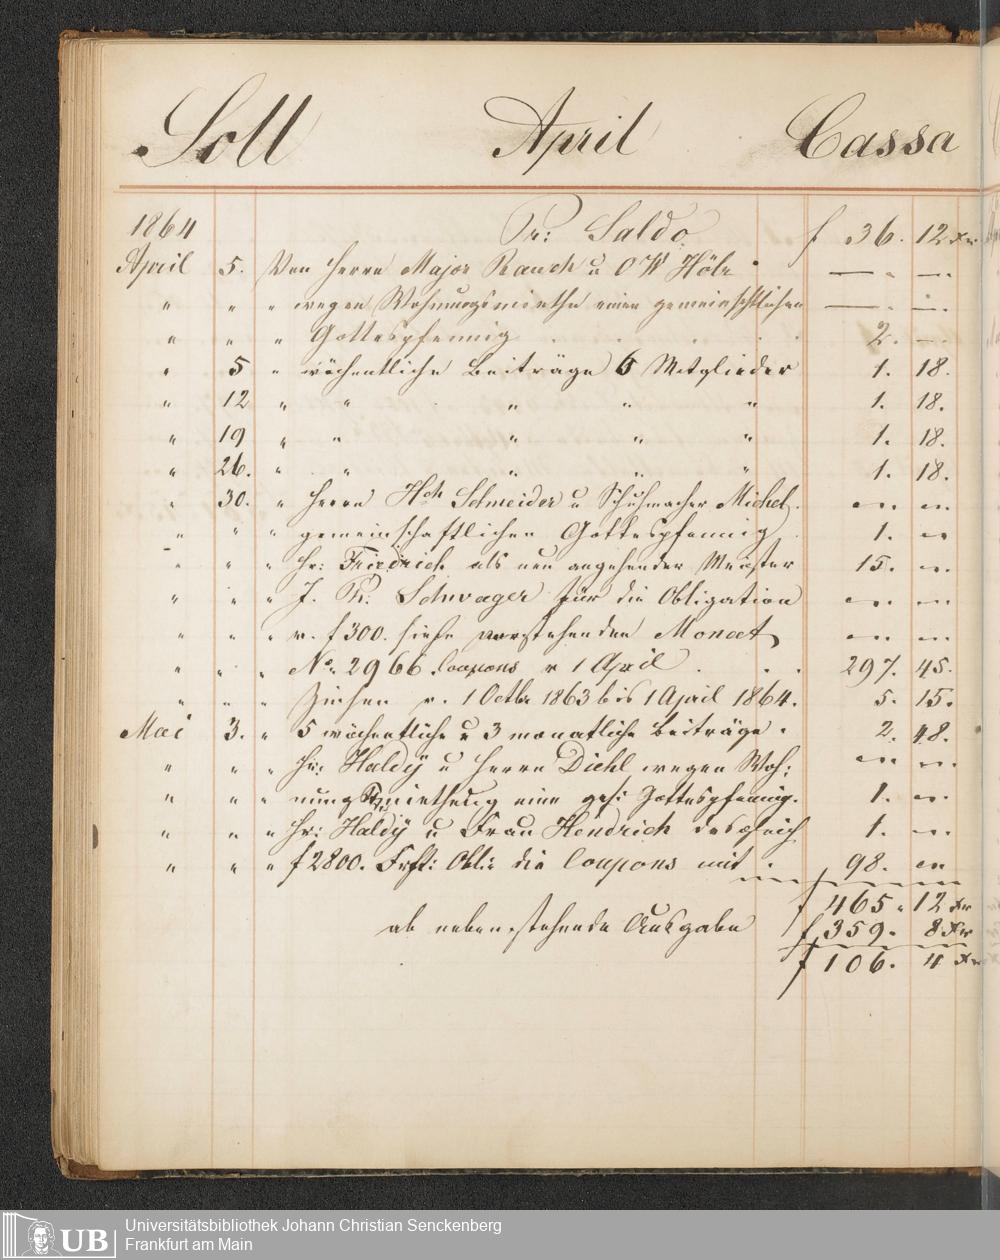 Soll April Cassa
1864 Pr: Saldo f 36. 12 xr
April 5. Von Herrn Major Rauch u — . —
" " " wegen Wohnungsmiethe einen gemeinschtlichen — . —
" " " Gottespfennig . . . . . 2. —
" 5 " wöchentliche Beiträge 6 Mitglieder 1. 18.
" 12 " " " " " 1. 18.
" 19 " " " " " 1. 18.
" 26. " " " " " 1. 18.
" 30. " Herrn Hch Schneider u Schuhmacher Michel. — —
" " " gemeinschaftlichen Gottespfennig 1. —
" " " Hr: Friedrich als neu angehender Meister 15. —
" " " J. Ph: Schwager für die Obligation — —
" " " v. f 300. siehe vorstehenden Monat — —
" " " No. 2966. Coupons v 1 April . . . 297. 45.
" " " Zinsen v. 1 Octbr 1863 bis 1 April 1864. 5. 15.
Mai 3. " 5 wöchentliche u 3 monatliche Beiträge. 2. 48.
" " " Hr: Haldÿ u Herrn Diehl wegen Woh: — —
" " " eine gesi Gottespfennig. 1. —
" " " Hr: Haldÿ u Frau Hendrich desgleich 1. —
" " " f 2800. Frft: Obl: die Coupons mit . 98. —
f 465. 12 xr
ab nebenstehende Ausgabe f 359. 8 xr
f 106. 4 xr
UB Universitätsbibliothek Johann Christian Senckenberg
Frankfurt am Main